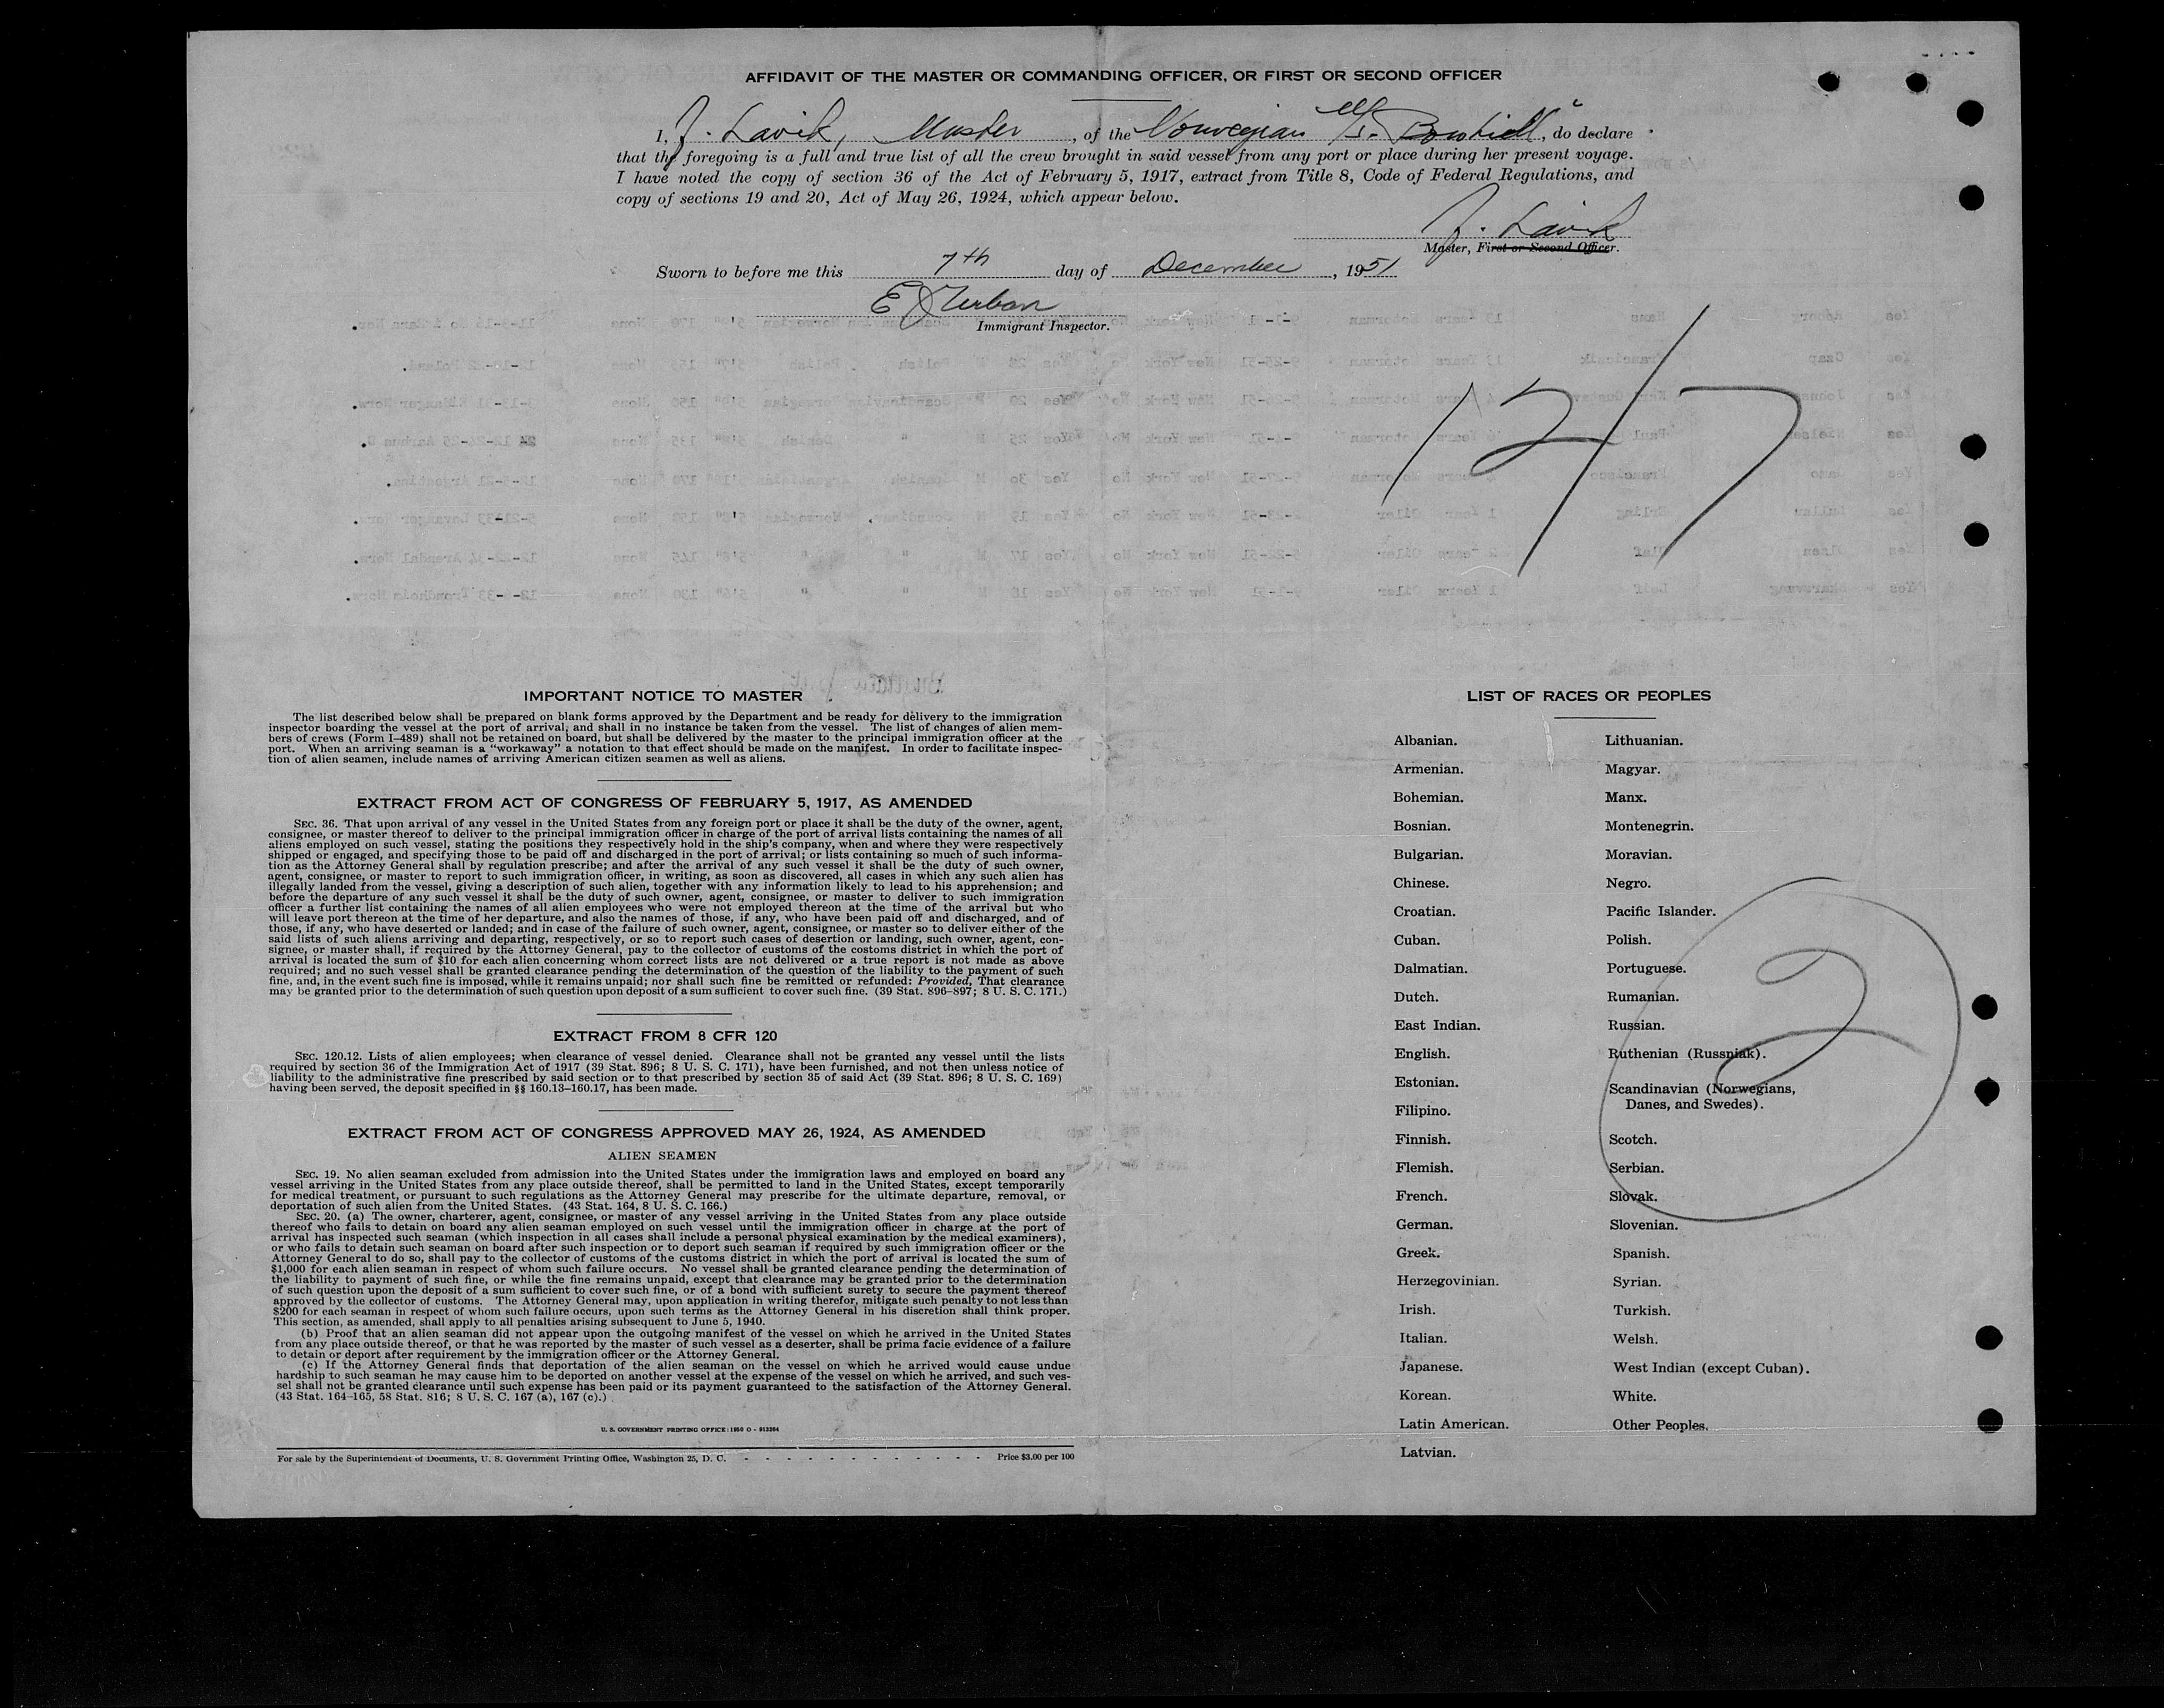 AFFIDAVIT OF THE MASTER OR COMMANDING OFFICER, OR FIRST OR SECOND OFFICER
I, J. Lavik, Master, of the Norwegian M/S. Bowhill, do declare
that the foregoing is a full and true list of all the crew brought in said vessel from any port or place during her present voyage.
I have noted the copy of section 36 of the Act of February 5, 1917, extract from Title 8, Code of Federal Regulations, and
copy of sections 19 and 20, Act of May 26, 1924, which appear below.
J. Lavik
Master, First or Second Officer.
Sworn to before me this 7th day of December, 1951
E Urban
Immigrant Inspector.
12/7
IMPORTANT NOTICE TO MASTER
The list described below shall be prepared on blank forms approved by the Department and be ready for delivery to the immigration
inspector boarding the vessel at the port of arrival; and shall in no instance be taken from the vessel. The list of changes of alien mem-
bers of crews (Form I-489) shall not be retained on board, but shall be delivered by the master to the principal immigration officer at the
port. When an arriving seaman is a "workaway" a notation to that effect should be made on the manifest. In order to facilitate inspec-
tion of alien seamen, include names of arriving American citizen seamen as well as aliens.
EXTRACT FROM ACT OF CONGRESS OF FEBRUARY 5, 1917, AS AMENDED
SEC. 36. That upon arrival of any vessel in the United States from any foreign port or place it shall be the duty of the owner, agent,
consignee, or master thereof to deliver to the principal immigration officer in charge of the port of arrival lists containing the names of all
aliens employed on such vessel, stating the positions they respectively hold in the ship's company, when and where they were respectively
shipped or engaged, and specifying those to be paid off and discharged in the port of arrival; or lists containing so much of such informa-
tion as the Attorney General shall by regulation prescribe; and after the arrival of any such vessel it shall be the duty of such owner,
agent, consignee, or master to report to such immigration officer, in writing, as soon as discovered, all cases in which any such alien has
illegally landed from the vessel, giving a description of such alien, together with any information likely to lead to his apprehension; and
before the departure of any such vessel it shall be the duty of such owner, agent, consignee, or master to deliver to such immigration
officer a further list containing the names of all alien employees who were not employed thereon at the time of the arrival but who
will leave port thereon at the time of her departure, and also the names of those, if any, who have been paid off and discharged, and of
those, if any, who have deserted or landed; and in case of the failure of such owner, agent, consignee, or master so to deliver either of the
said lists of such aliens arriving and departing, respectively, or so to report such cases of desertion or landing, such owner, agent, con-
signee, or master shall, if required by the Attorney General, pay to the collector of customs of the customs district in which the port of
arrival is located the sum of $10 for each alien concerning whom correct lists are not delivered or a true report is not made as above
required; and no such vessel shall be granted clearance pending the determination of the question of the liability to the payment of such
fine, and, in the event such fine is imposed, while it remains unpaid; nor shall such fine be remitted or refunded: Provided, That clearance
may be granted prior to the determination of such question upon deposit of a sum sufficient to cover such fine. (39 Stat. 896–897; 8 U. S. C. 171.)
EXTRACT FROM 8 CFR 120
SEC. 120.12. Lists of alien employees; when clearance of vessel denied. Clearance shall not be granted any vessel until the lists
required by section 36 of the Immigration Act of 1917 (39 Stat. 896; 8 U. S. C. 171), have been furnished, and not then unless notice of
liability to the administrative fine prescribed by said section or to that prescribed by section 35 of said Act (39 Stat. 896; 8 U. S. C. 169)
having been served, the deposit specified in §§ 160.13–160.17, has been made.
EXTRACT FROM ACT OF CONGRESS APPROVED MAY 26, 1924, AS AMENDED
ALIEN SEAMEN
SEC. 19. No alien seaman excluded from admission into the United States under the immigration laws and employed on board any
vessel arriving in the United States from any place outside thereof, shall be permitted to land in the United States, except temporarily
for medical treatment, or pursuant to such regulations as the Attorney General may prescribe for the ultimate departure, removal, or
deportation of such alien from the United States. (43 Stat. 164, 8 U. S. C. 166.)
SEC. 20. (a) The owner, charterer, agent, consignee, or master of any vessel arriving in the United States from any place outside
thereof who fails to detain on board any alien seaman employed on such vessel until the immigration officer in charge at the port of
arrival has inspected such seaman (which inspection in all cases shall include a personal physical examination by the medical examiners),
or who fails to detain such seaman on board after such inspection or to deport such seaman if required by such immigration officer or the
Attorney General to do so, shall pay to the collector of customs of the customs district in which the port of arrival is located the sum of
$1,000 for each alien seaman in respect of whom such failure occurs. No vessel shall be granted clearance pending the determination of
the liability to payment of such fine, or while the fine remains unpaid, except that clearance may be granted prior to the determination
of such question upon the deposit of a sum sufficient to cover such fine, or of a bond with sufficient surety to secure the payment thereof
approved by the collector of customs. The Attorney General may, upon application in writing therefor, mitigate such penalty to not less than
$200 for each seaman in respect of whom such failure occurs, upon such terms as the Attorney General in his discretion shall think proper.
This section, as amended, shall apply to all penalties arising subsequent to June 5, 1940.
(b) Proof that an alien seaman did not appear upon the outgoing manifest of the vessel on which he arrived in the United States
from any place outside thereof, or that he was reported by the master of such vessel as a deserter, shall be prima facie evidence of a failure
to detain or deport after requirement by the immigration officer or the Attorney General.
(c) If the Attorney General finds that deportation of the alien seaman on the vessel on which he arrived would cause undue
hardship to such seaman he may cause him to be deported on another vessel at the expense of the vessel on which he arrived, and such ves-
sel shall not be granted clearance until such expense has been paid or its payment guaranteed to the satisfaction of the Attorney General.
(43 Stat. 164–165, 58 Stat. 816; 8 U. S. C. 167 (a), 167 (c).)
U. S. GOVERNMENT PRINTING OFFICE: 1950 O - 913264
For sale by the Superintendent of Documents, U. S. Government Printing Office, Washington 25, D. C. - - - - - - - - - - - - Price $3.00 per 100
LIST OF RACES OR PEOPLES
Albanian.
Armenian.
Bohemian.
Bosnian.
Bulgarian.
Chinese.
Croatian.
Cuban.
Dalmatian.
Dutch.
East Indian.
English.
Estonian.
Filipino.
Finnish.
Flemish.
French.
German.
Greek.
Herzegovinian.
Irish.
Italian.
Japanese.
Korean.
Latin American.
Latvian.
Lithuanian.
Magyar.
Manx.
Montenegrin.
Moravian.
Negro.
Pacific Islander.
Polish.
Portuguese.
Rumanian.
Russian.
Ruthenian (Russniak).
Scandinavian (Norwegians,
Danes, and Swedes).
Scotch.
Serbian.
Slovak.
Slovenian.
Spanish.
Syrian.
Turkish.
Welsh.
West Indian (except Cuban).
White.
Other Peoples.
2